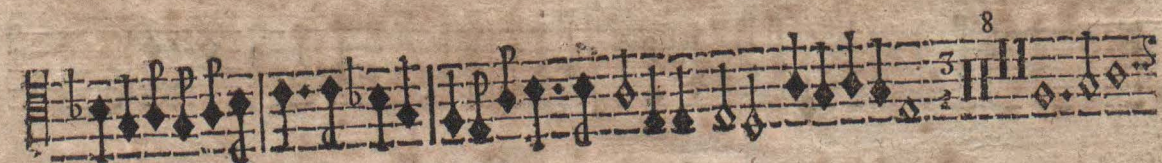 8
3
2